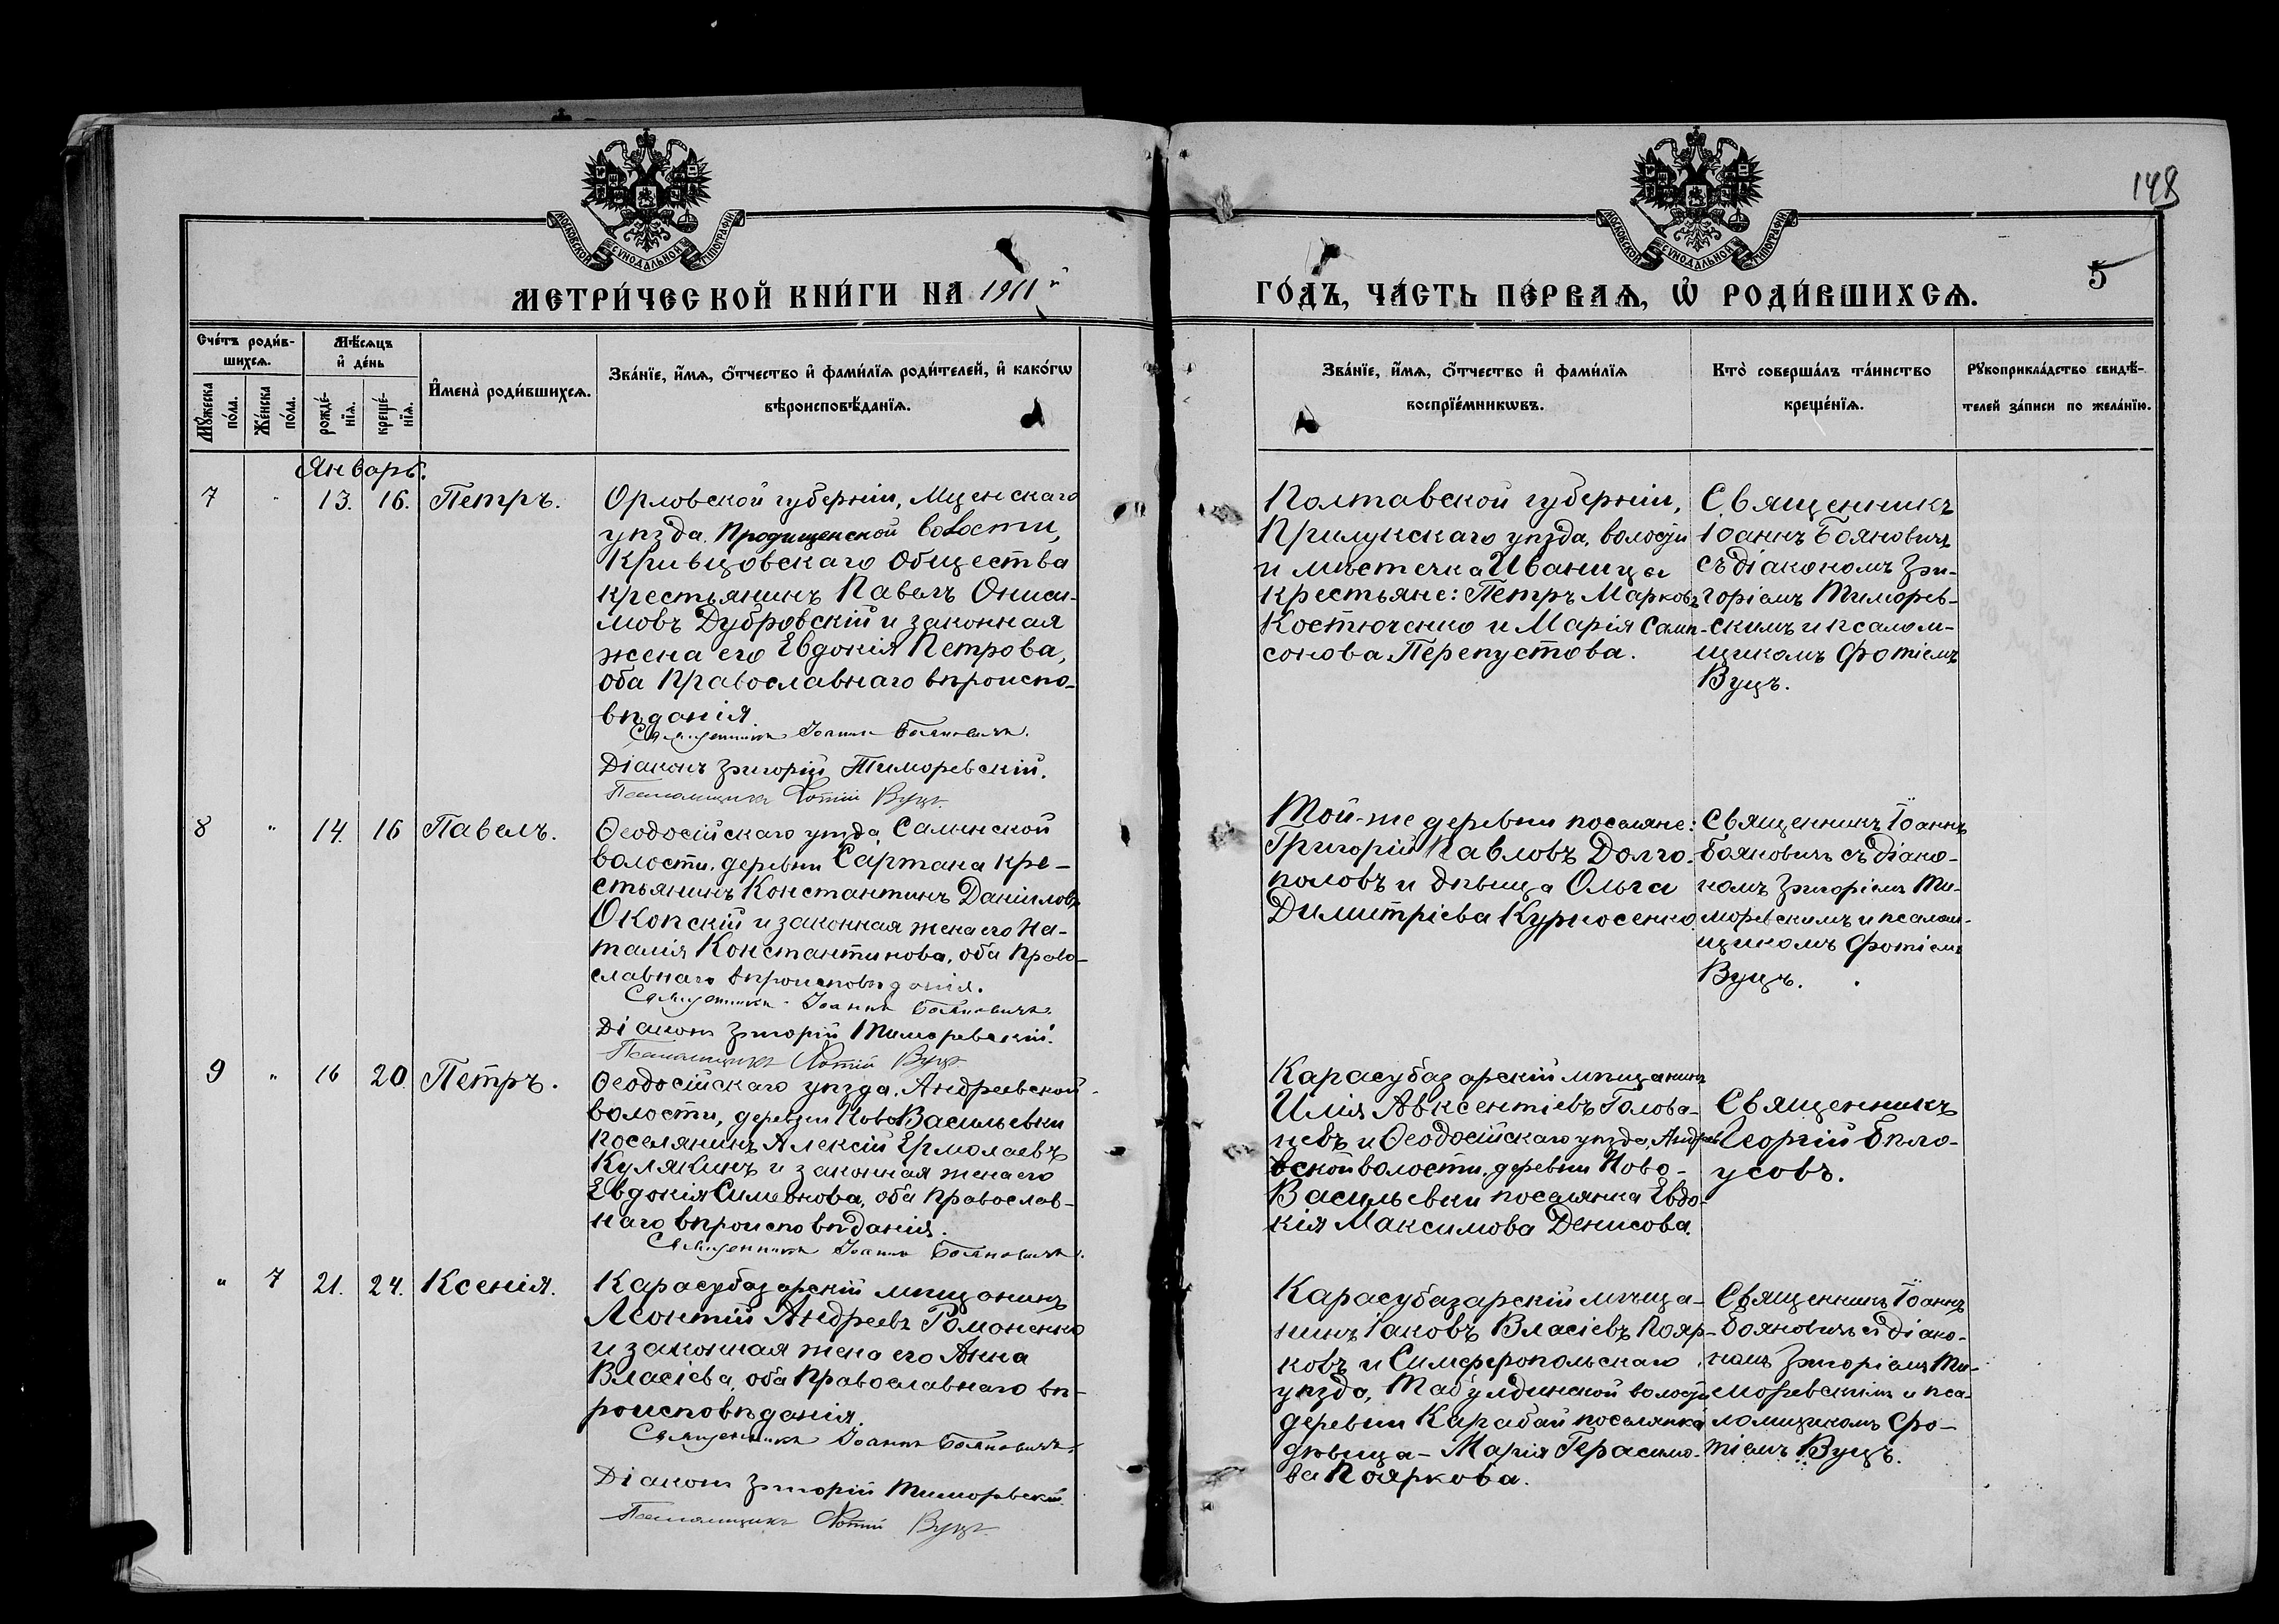 148
5
МОСКОВСКОЙ СѴНОДАЛЬНОЙ ТИПОГРАФІИ
МОСКОВСКОЙ СѴНОДАЛЬНОЙ ТИПОГРАФІИ
МЕТРИ́ЧЕСКОЙ КНИ́ГИ НА 1911й
ГО́ДЪ, ЧА́СТЬ ПЕ́РВАѦ, Ѡ҆ РОДИ́ВШИХСѦ.
Сче́тъ роди́в-
шихсѧ.
Мꙋ́жеска
по́ла.
Же́нска
по́ла.
Мѣ́сѧцъ
и҆ де́нь
рожде́-
нїѧ.
креще́-
нїѧ.
И҆мена̀ роди́вшихсѧ.
Зва́нїе, и҆́мѧ, ѻ҆́тчество и҆ фами́лїѧ роди́телей, и҆ како́гѡ
вѣроисповѣ́данїѧ.
Зва́нїе, и҆́мѧ, ѻ҆́тчество и҆ фами́лїѧ
воспрїе́мникѡвъ.
Кто̀ соверша́лъ та́инство
креще́нїѧ.
Рꙋкоприкла́дство свидѣ́-
телей за́писи по жела́нїю.
Январь.
7 " 13. 16. Петръ.
Орловской губерніи, Мценскаго
уѣзда, Продищенской волости,
Кривцовскаго общества
крестьянинъ Павелъ Ониси-
мовъ Дубровскій и законная
жена его Евдокія Петрова,
оба Православнаго вѣроиспо-
вѣданія.
Священникъ Іоаннъ Бояновичъ.
Діаконъ Григорій Тиморевскій.
Псаломщикъ Фотій Вуцъ.
Полтавской губерніи,
Прилукскаго уѣзда, волости
и мѣстечка Иваницы
крестьяне: Петръ Марковъ
Костюченко и Марія Самп-
сонова Перепустова.
Священникъ
Іоаннъ Бояновичъ
съ діакономъ Гри-
горіемъ Тиморев-
скимъ и псалом-
щикомъ Фотіемъ
Вуцъ.
8 " 14. 16 Павелъ.
Ѳеодосійскаго уѣзда Салынской
волости, деревни Сартана кре-
стьянинъ Константинъ Даніиловъ
Окопскій и законная жена его На-
талія Константинова, оба Право-
славнаго вѣроисповѣданія.
Священникъ Іоаннъ Бояновичъ.
Діаконъ Григорій Тиморевскій.
Псаломщикъ Фотій Вуцъ.
Той-же деревни поселяне:
Григорій Павловъ Долго-
половъ и дѣвица Ольга
Димитріева Курносенко.
Священникъ Іоаннъ
Бояновичъ съ діако-
номъ Григоріемъ Ти-
моревскимъ и псалом-
щикомъ Фотіемъ
Вуцъ.
9 " 16 20. Петръ.
Ѳеодосійскаго уѣзда, Андреевской
волости, деревни НовоВасильевки
поселянинъ Алексій Ермолаевъ
Кулякинъ и законная жена его
Евдокія Симеонова, оба православ-
наго вѣроисповѣданія.
Священникъ Іоаннъ Бояновичъ.
Карасубазарскій мѣщанинъ
Илія Авксентіевъ Голова-
чевъ и Ѳеодосійскаго уѣзда, Андрее
вской волости, деревни Ново-
Васильевки поселянка Евдо-
кія Максимова Денисова.
Священникъ
Георгій Бѣло-
усовъ.
" 7 21. 24. Ксенія.
Карасубазарскій мѣщанинъ
Леонтій Андреевъ Романенко
и законная жена его Анна
Власіева, оба Православнаго вѣ-
роисповѣданія.
Священникъ Іоаннъ Бояновичъ.
Діаконъ Григорій Тиморевскій.
Псаломщикъ Фотій Вуцъ.
Карасубазарскій мѣща-
нинъ Іаковъ Власіевъ Пояр-
ковъ и Симферопольскаго
уѣзда, Табулдинской волости
деревни Карабай поселянка
дѣвица - Марія Герасимо-
ва Пояркова.
Священникъ Іоаннъ
Бояновичъ съ діако-
номъ Григоріемъ Ти-
моревскимъ и пса-
ломщикомъ Фо-
тіемъ Вуцъ.